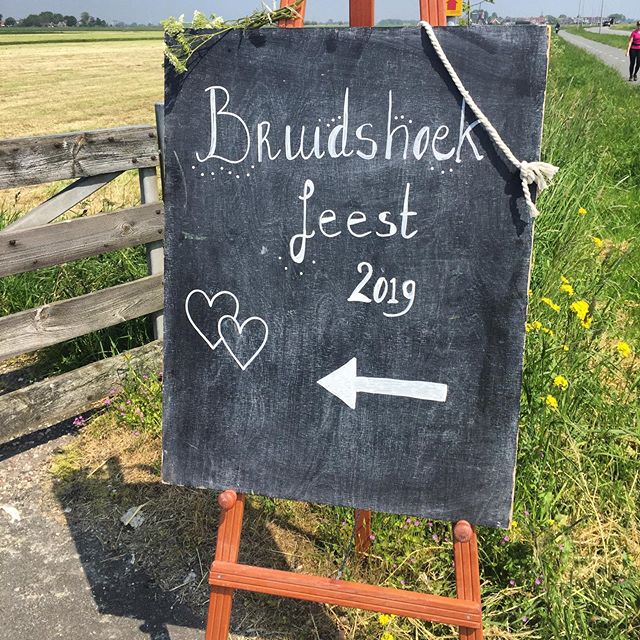 Bruidshoek
feest
2019